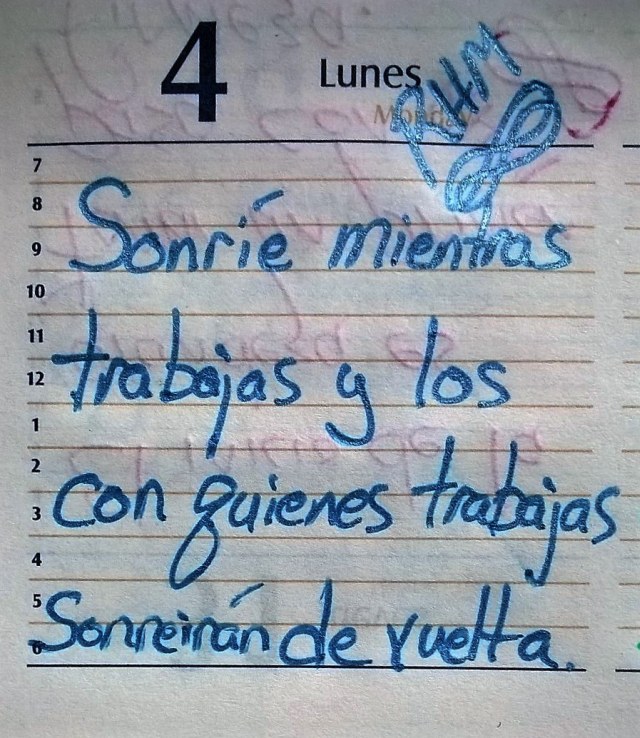 4 Lunes
Monday
RHM
7
8
Sonríe mientras
9
10
11
trabajas y los
12
1
2
con quienes trabajas
3
4
5
Sonreirán de vuelta.
6